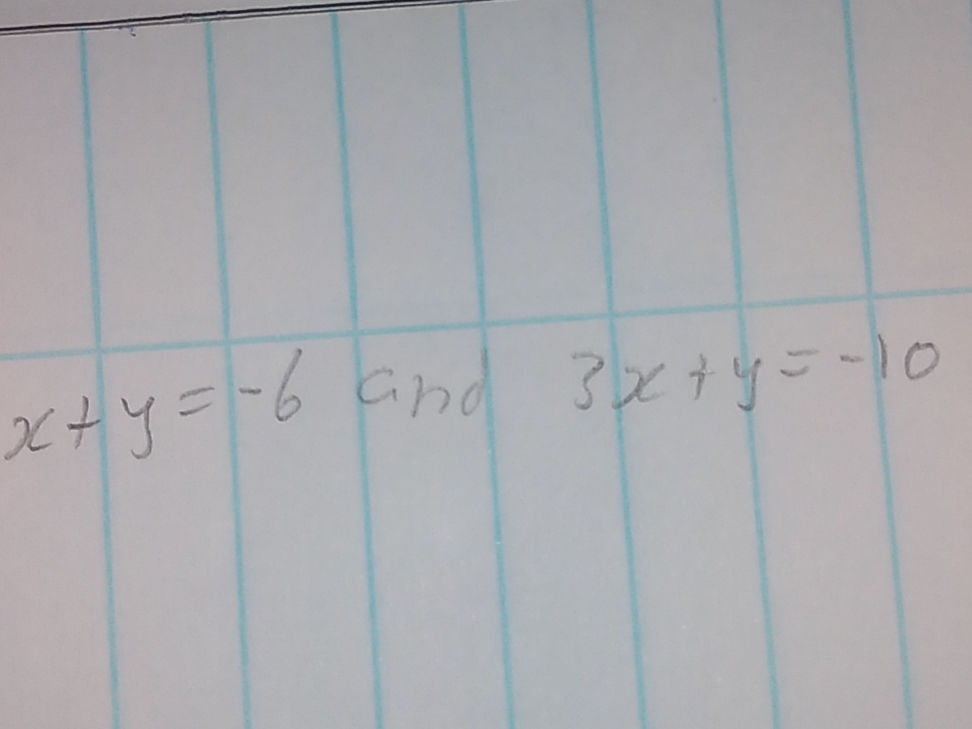 x+y=-6 and 3x+y=-10